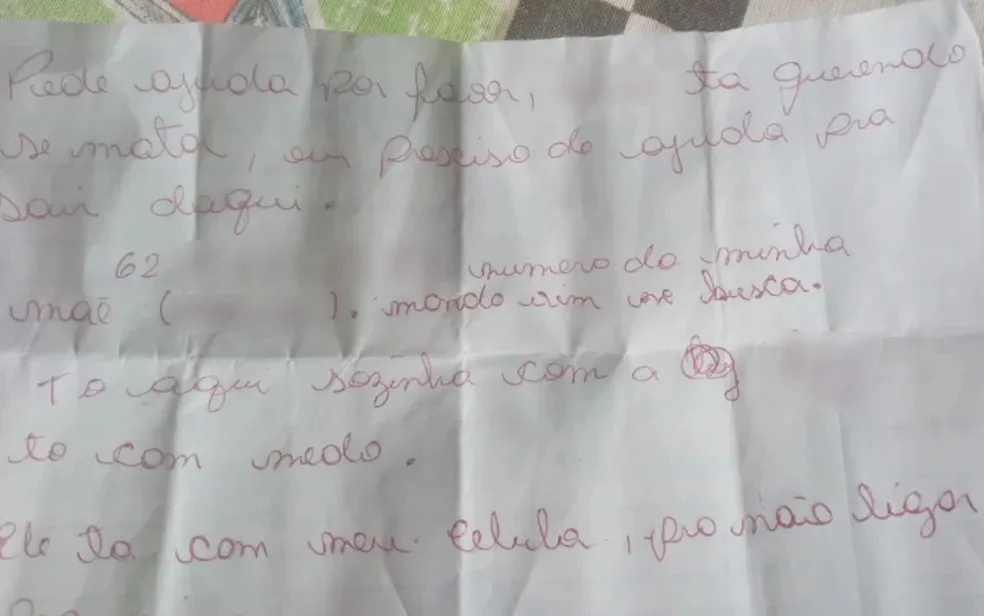 Pede ajuda por favor, ta querendo
se mata, eu presciso de ajuda pra
sair daqui.
62 numero da minha
mãe ( ). manda vim me busca.
To aqui sozinha com a
to com medo.
Ele ta com meu celula, pra não liga